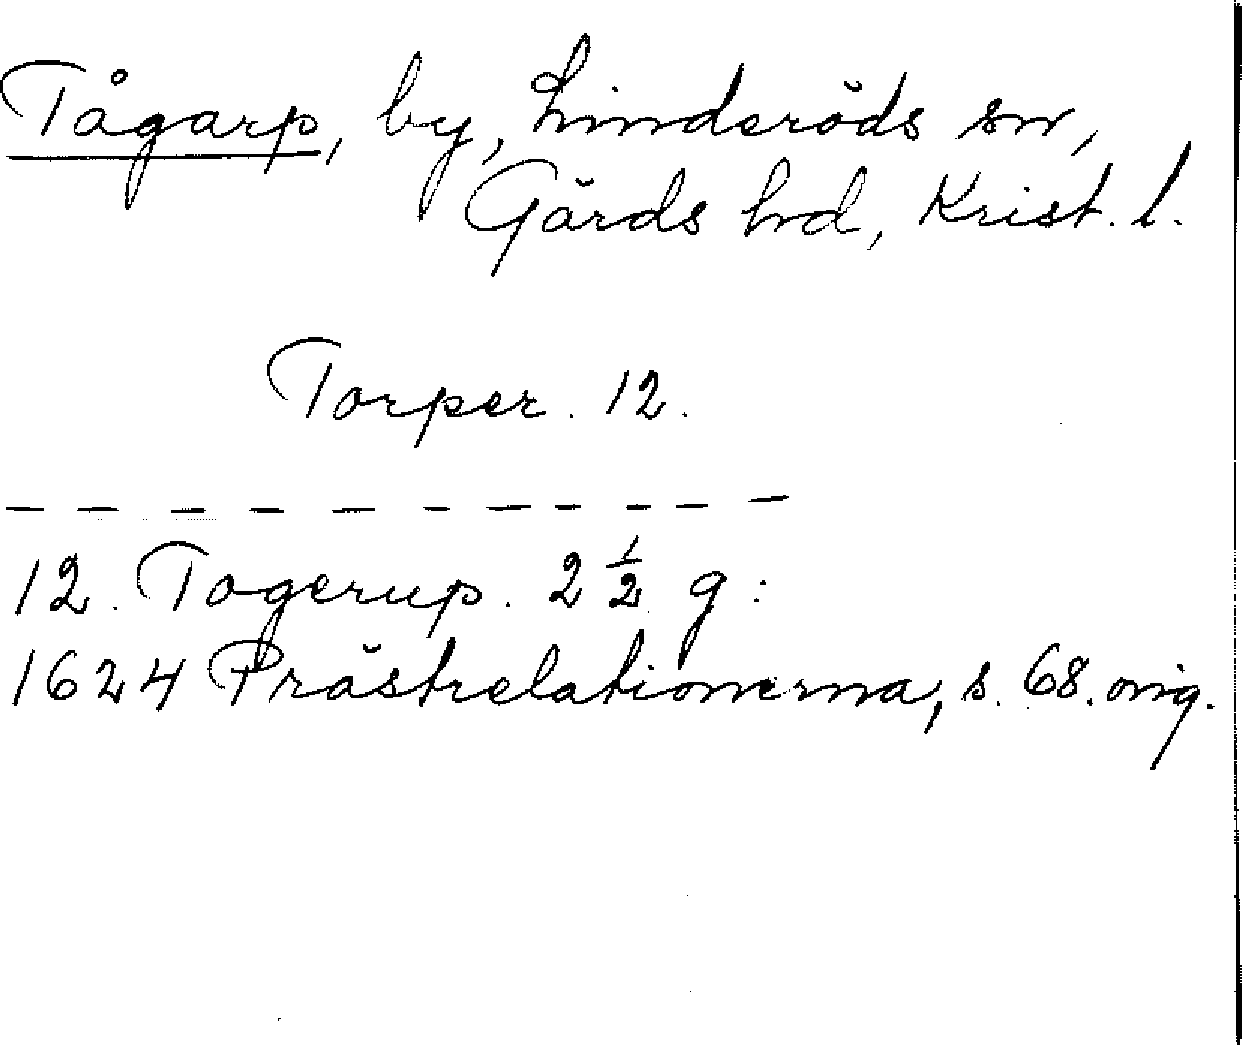 Tågarp, by, Linderöds sn,
Gärds hd, Krist. l.
Torper. 12.
12. Togerup. 2 1/2 g:
1624 Prästrelationerna, s. 68. orig.